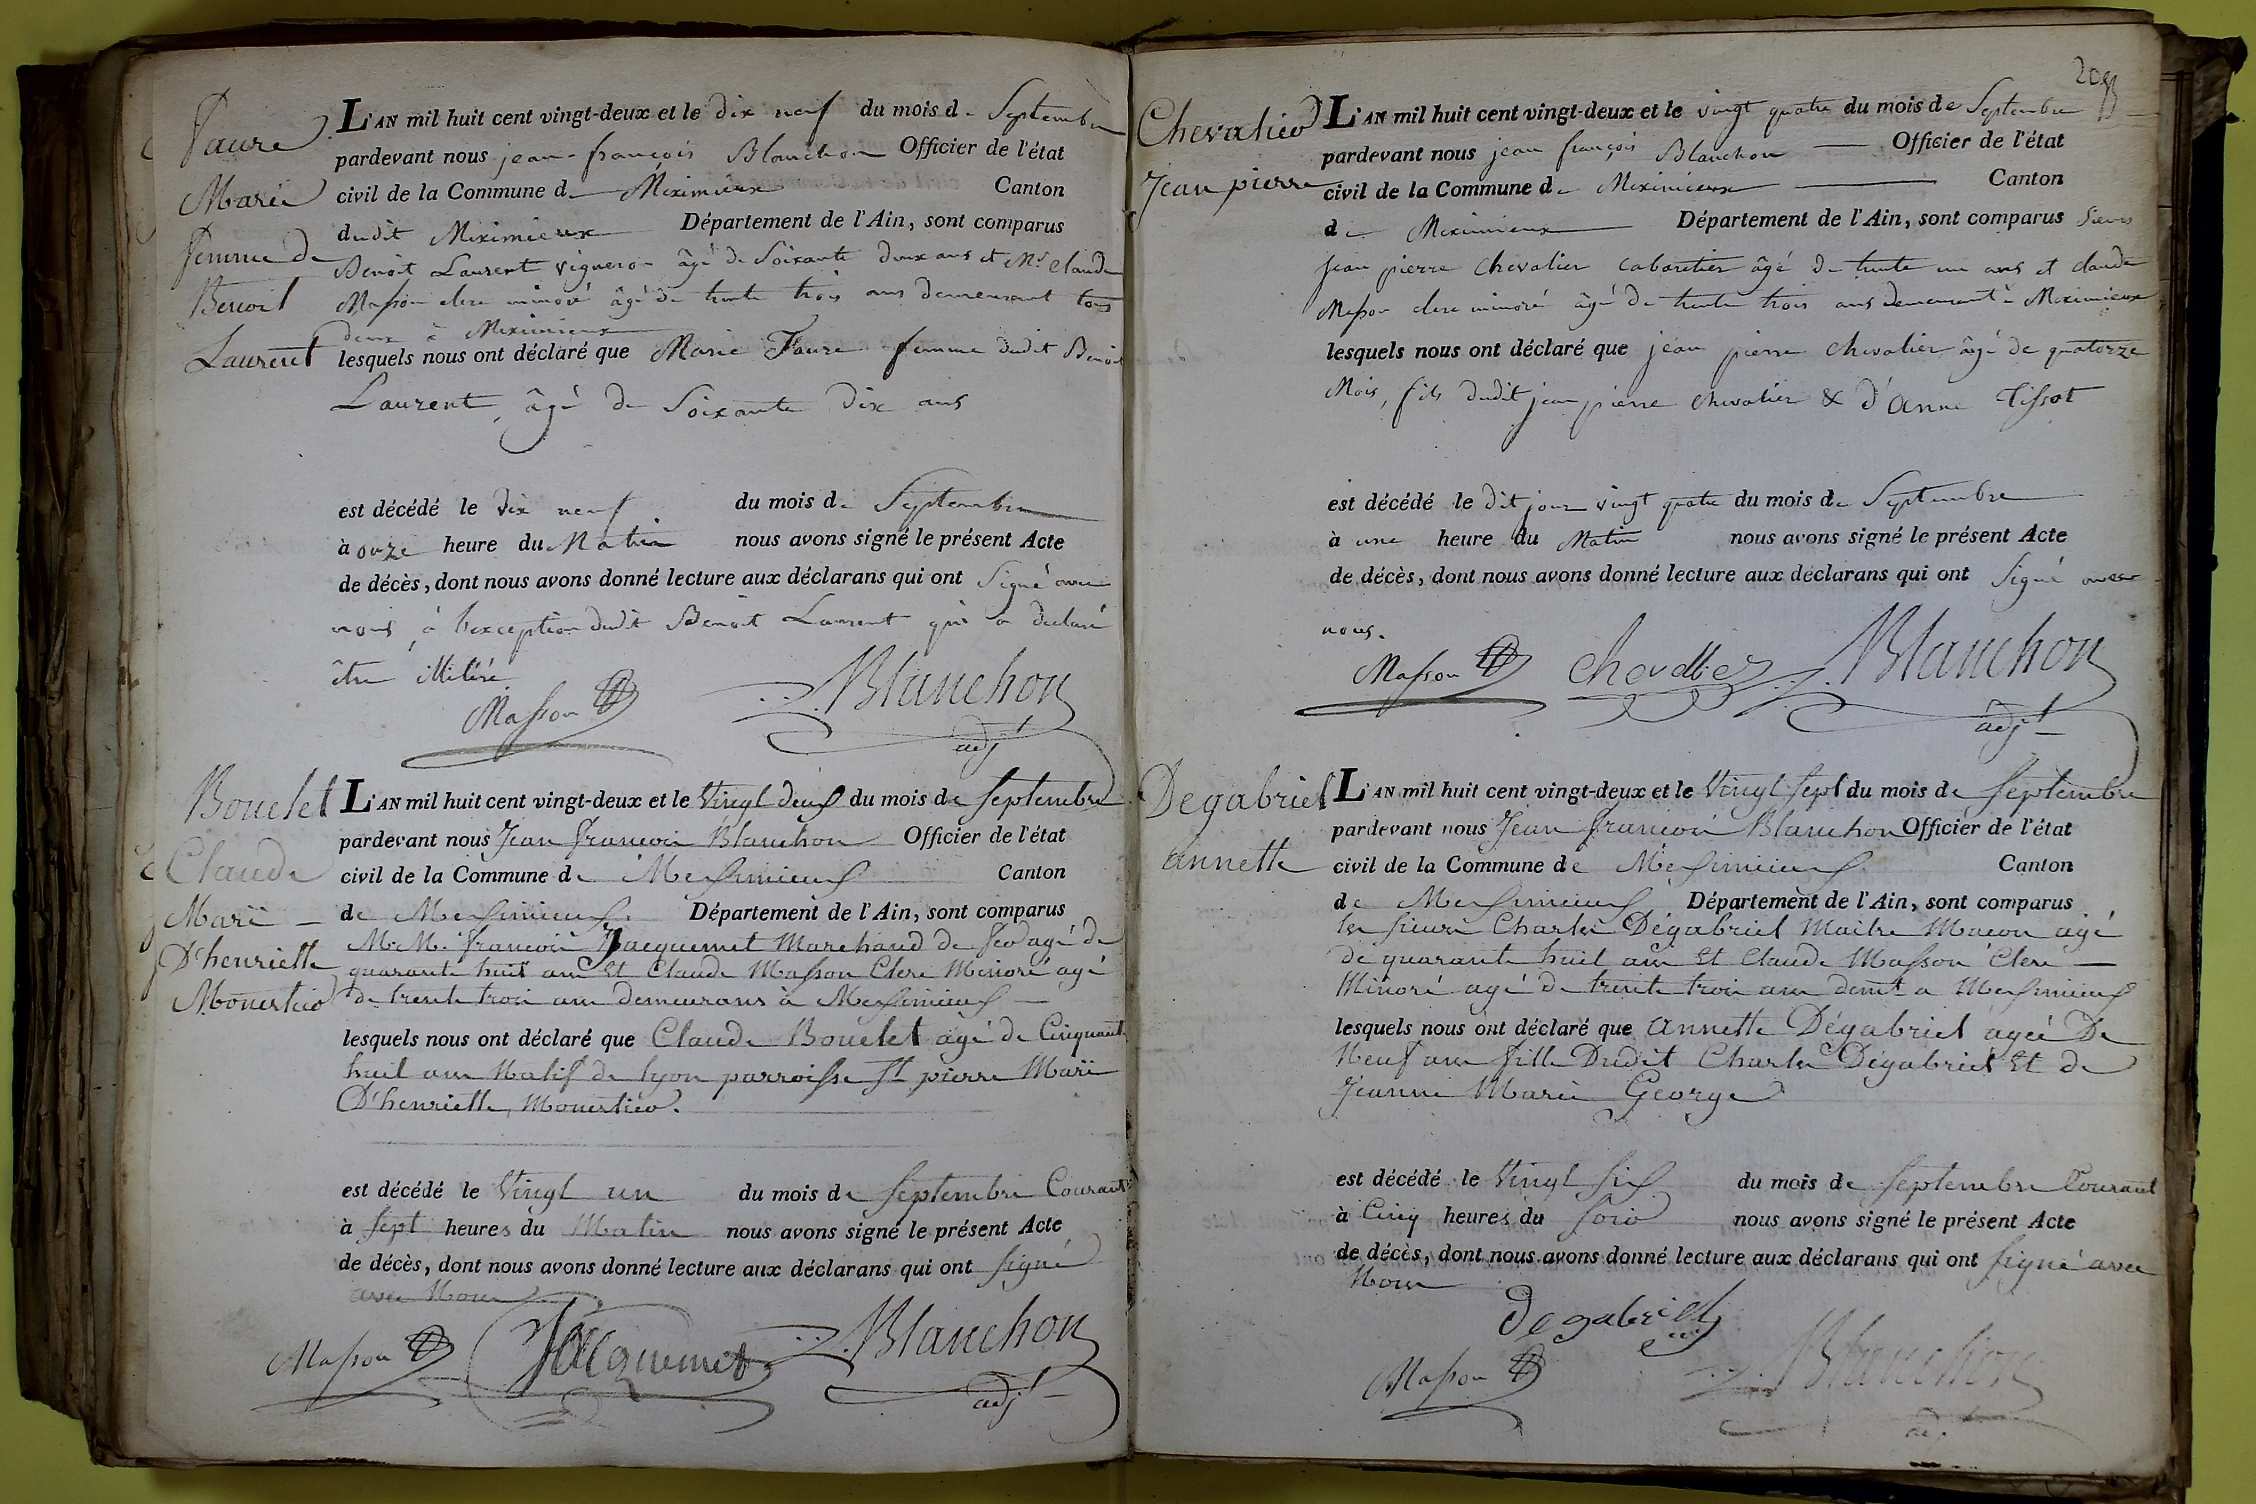 Faure
Marie
femme de
Benoit
Laurent
L'AN mil huit cent vingt-deux et le dix neuf du mois de Septembre
pardevant nous jean-françois Blanchon Officier de l'état
civil de la Commune de Meximieux Canton
dudit Meximieux Département de l'Ain, sont comparus
Benoit Laurent vigneron âgé de Soixante deux ans et Mr Claude
Masson clerc minoré âgé de trente trois ans demeurant tous
deux à Meximieux
lesquels nous ont déclaré que Marie Faure femme dudit Benoit
Laurent, âgé de Soixante dix ans
est décédé le dix neuf du mois de Septembre
à onze heure du Matin nous avons signé le présent Acte
de décès, dont nous avons donné lecture aux déclarans qui ont Signé avec
nous, à l'exception dudit Benoit Laurent qui a déclaré
être illitéré
Masson Blanchon
adjt
Bouclet
Claude
Mari
D'henriette
Monestier
L'AN mil huit cent vingt-deux et le Vingt deux du mois de Septembre
pardevant nous Jean francois Blanchon Officier de l'état
civil de la Commune de Meximieux Canton
de Meximieux Département de l'Ain, sont comparus
M.M. francois Jacquemet Marchand de fer agé de
quarante huit ans Et Claude Masson Clerc Minoré agé
de trente trois ans demeurans à Meximieux
lesquels nous ont déclaré que Claude Bouclet agé de Cinquante
huit ans Natif de lyon parroisse St pierre Mari
D'henriette Monestier.
est décédé le Vingt un du mois de Septembre Courant
à Sept heures du Matin nous avons signé le présent Acte
de décès, dont nous avons donné lecture aux déclarans qui ont Signé
avec Nous
Masson Jacquemet Blanchon
adjt
208
Chevalier
Jean pierre
L'AN mil huit cent vingt-deux et le vingt quatre du mois de Septembre
pardevant nous jean françois Blanchon Officier de l'état
civil de la Commune de Meximieux Canton
de Meximieux Département de l'Ain, sont comparus Sieurs
Jean pierre Chevalier Cabaretier âgé de trente un ans et claude
Masson clerc minoré âgé de trente trois ans demeurant à Meximieux
lesquels nous ont déclaré que jean pierre Chevalier âgé de quatorze
Mois, fils dudit jean pierre Chevalier & d'Anne Tissot
est décédé le dit jour vingt quatre du mois de Septembre
à une heure du Matin nous avons signé le présent Acte
de décès, dont nous avons donné lecture aux déclarans qui ont Signé avec
nous.
Masson Chevallier Blanchon
adjt
Degabriel
annette
L'AN mil huit cent vingt-deux et le Vingt Sept du mois de Septembre
pardevant nous Jean francois Blanchon Officier de l'état
civil de la Commune de Meximieux Canton
de Meximieux Département de l'Ain, sont comparus
les Sieurs Charles Dégabriel Maitre Macon agé
de quarante huit ans Et Claude Masson Clerc
Minoré agé de trente trois ans demt a Meximieux
lesquels nous ont déclaré que annette Dégabriel agée De
Neuf ans fille Dudit Charles Dégabriel Et de
Jeanne Marie George
est décédé le Vingt Six du mois de Septembre Courant
à Cinq heures du Soir nous avons signé le présent Acte
de décès, dont nous avons donné lecture aux déclarans qui ont Signé avec
Nous
Degabriel
Masson Blanchon
adjt